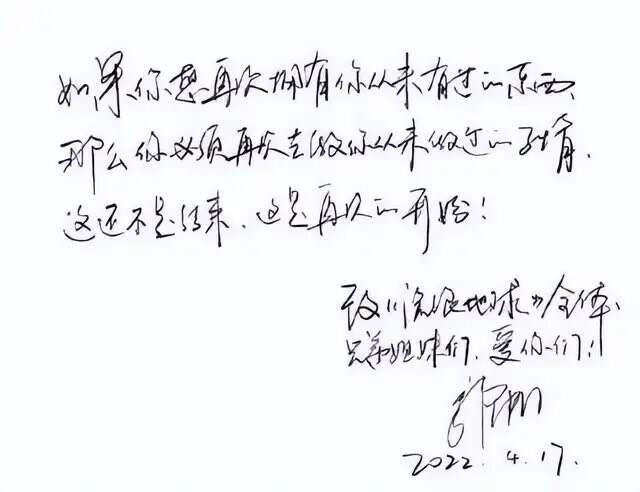 如果你想再次拥有你从来有过的东西,
那么你必须再次去做你从来做过的事情.
这还不是结束,这是再次的开始!
致《流浪地球》全体
兄弟姐妹们,爱你们!
2022.4.17.